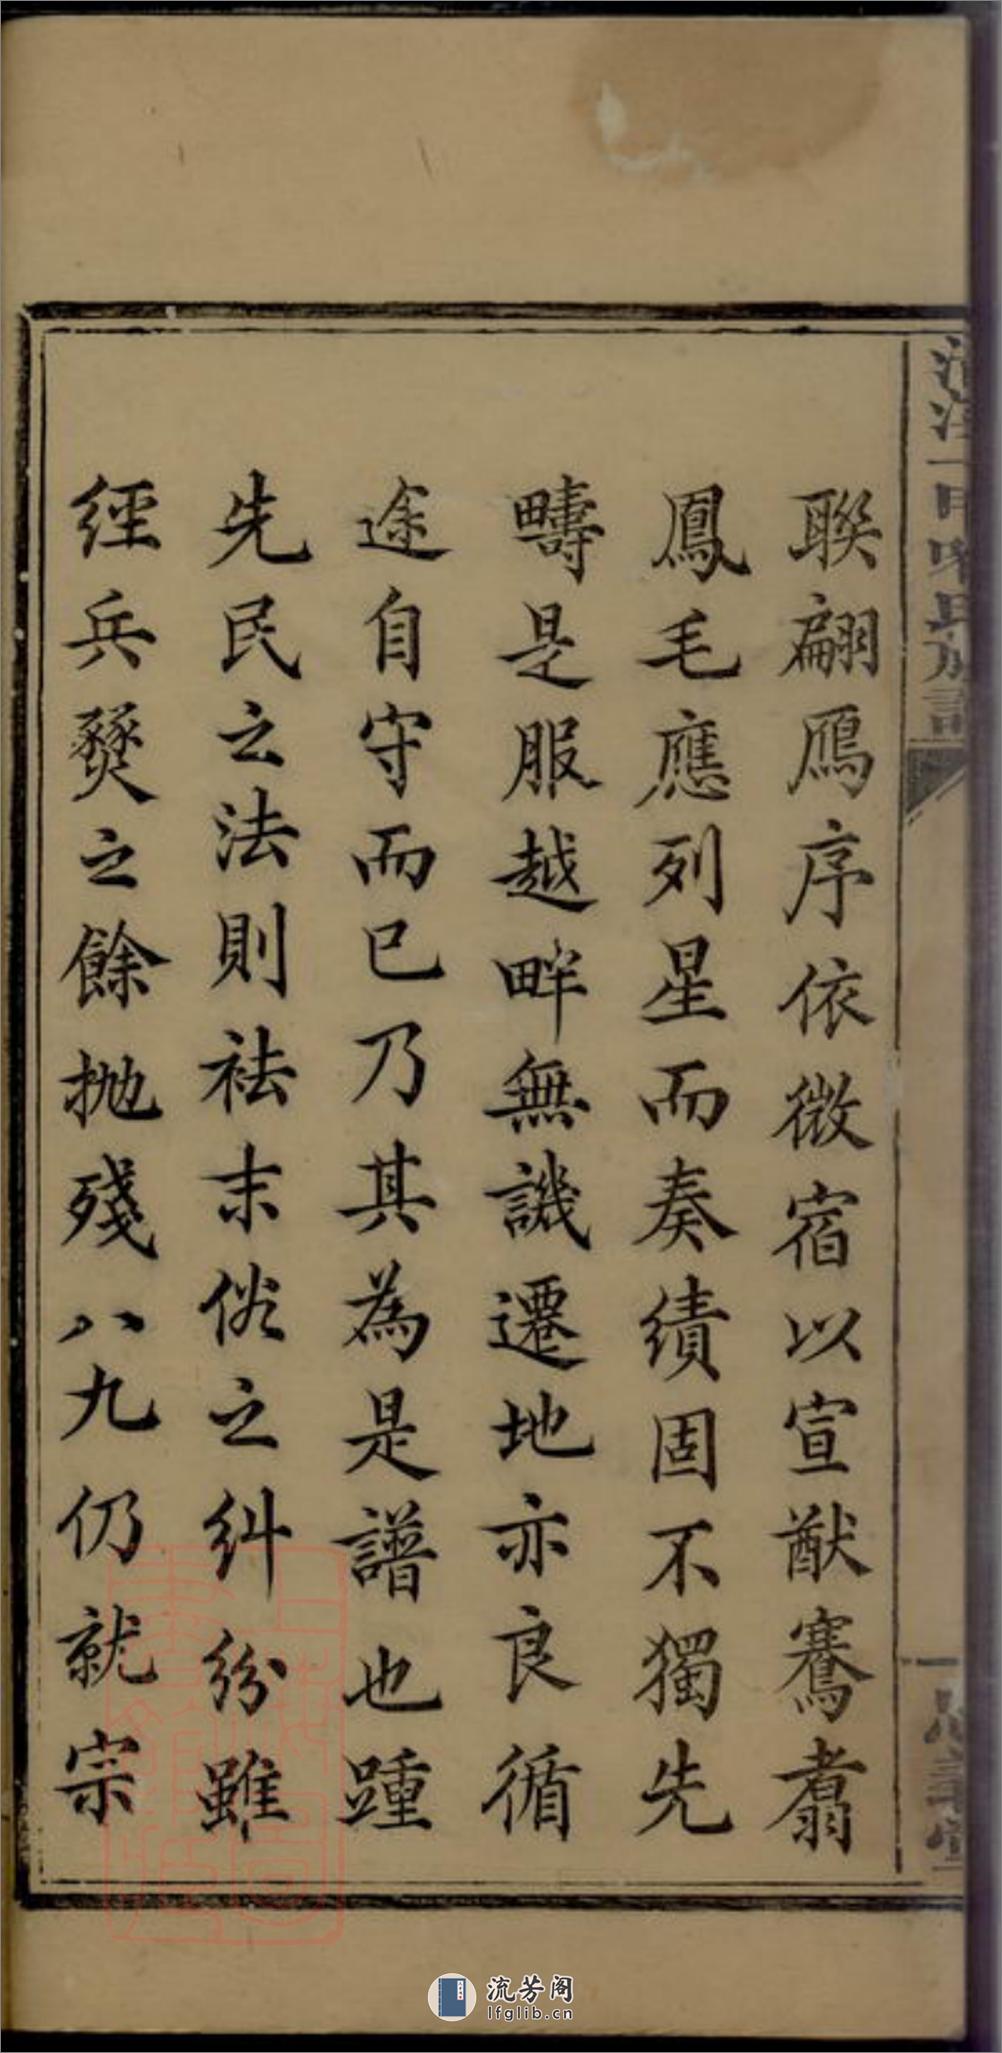 聯翩鴈序依微宿以宣猷騫翥
鳳毛應列星而奏績固不獨先
疇是服越畔無譏遷地亦良循
途自守而已乃其為是譜也踵
先民之法則祛末俗之糾紛雖
經兵燹之餘拋殘八九仍就宗
流芳阁
lfglib.cn